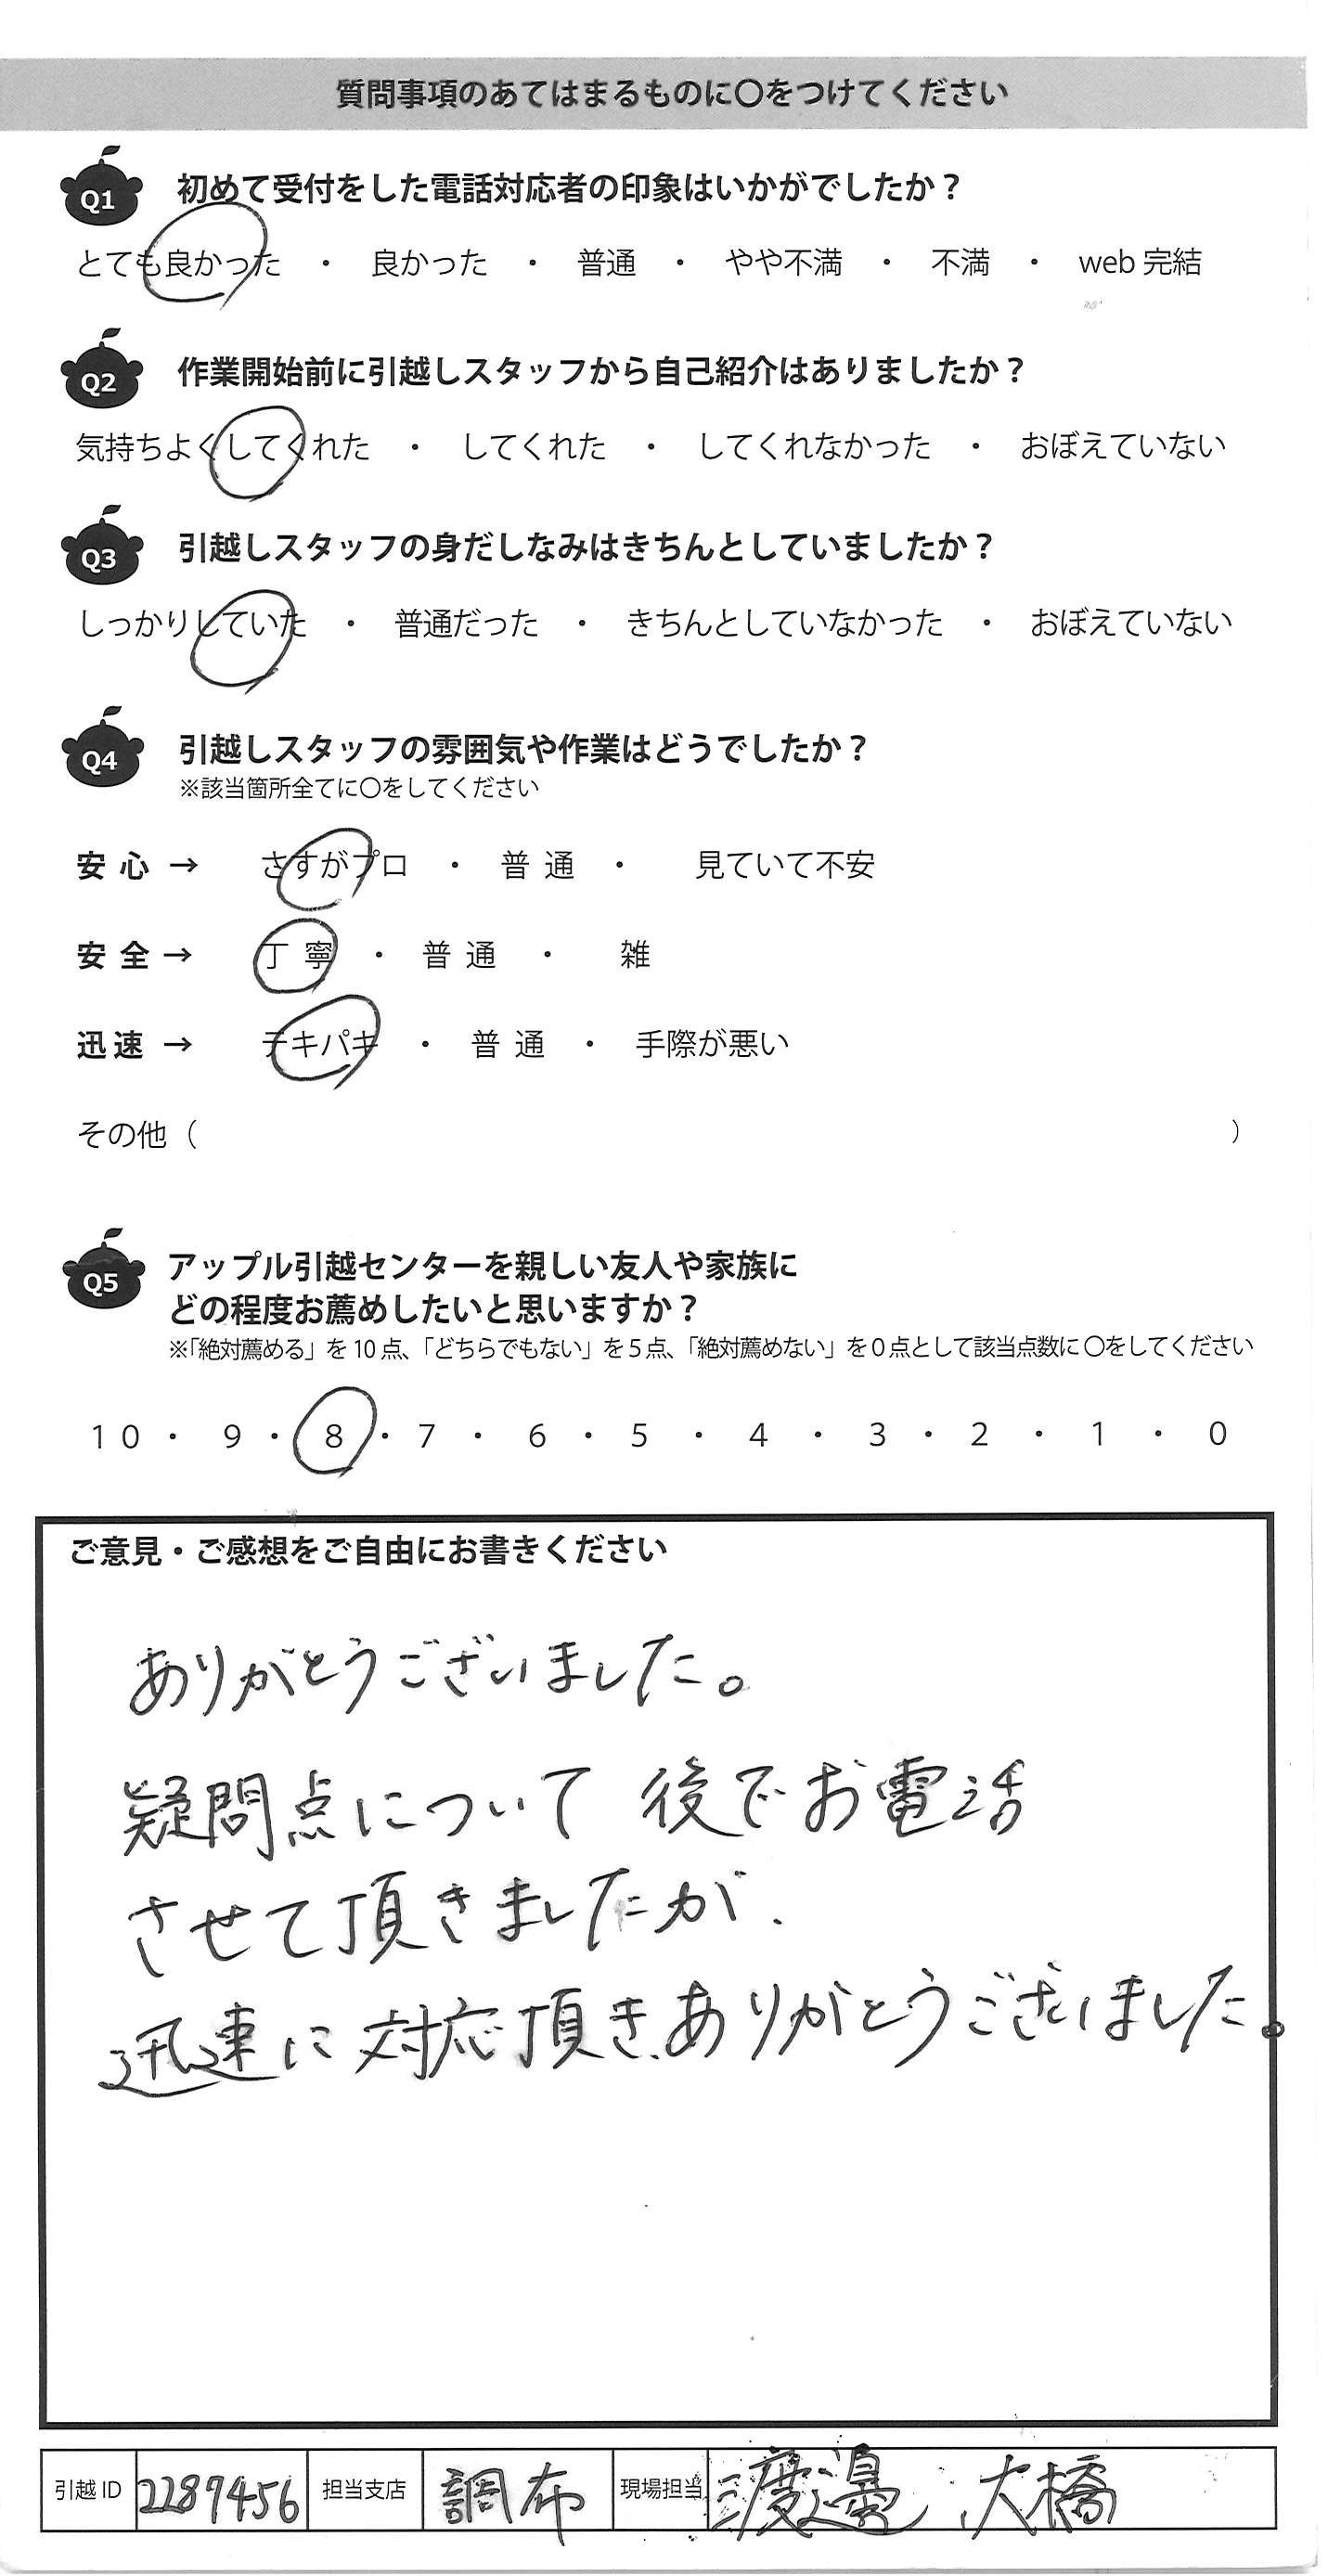 質問事項のあてはまるものに〇をつけてください
Q1 初めて受付をした電話対応者の印象はいかがでしたか？
とても良かった ・ 良かった ・ 普通 ・ やや不満 ・ 不満 ・ web 完結
Q2 作業開始前に引越しスタッフから自己紹介はありましたか？
気持ちよくしてくれた ・ してくれた ・ してくれなかった ・ おぼえていない
Q3 引越しスタッフの身だしなみはきちんとしていましたか？
しっかりしていた ・ 普通だった ・ きちんとしていなかった ・ おぼえていない
Q4 引越しスタッフの雰囲気や作業はどうでしたか？
※該当箇所全てに〇をしてください
安 心 → さすがプロ ・ 普 通 ・ 見ていて不安
安 全 → 丁 寧 ・ 普 通 ・ 雑
迅 速 → テキパキ ・ 普 通 ・ 手際が悪い
その他（ ）
Q5 アップル引越センターを親しい友人や家族に
どの程度お薦めしたいと思いますか？
※「絶対薦める」を 10 点、「どちらでもない」を 5 点、「絶対薦めない」を 0 点として該当点数に 〇をしてください
10 ・ 9 ・ 8 ・ 7 ・ 6 ・ 5 ・ 4 ・ 3 ・ 2 ・ 1 ・ 0
ご意見・ご感想をご自由にお書きください
ありがとうございました。
疑問点について 後でお電話
させて頂きましたが、
迅速に対応頂き、ありがとうございました。
引越 ID 2287456 担当支店 調布 現場担当 渡邉、大橋